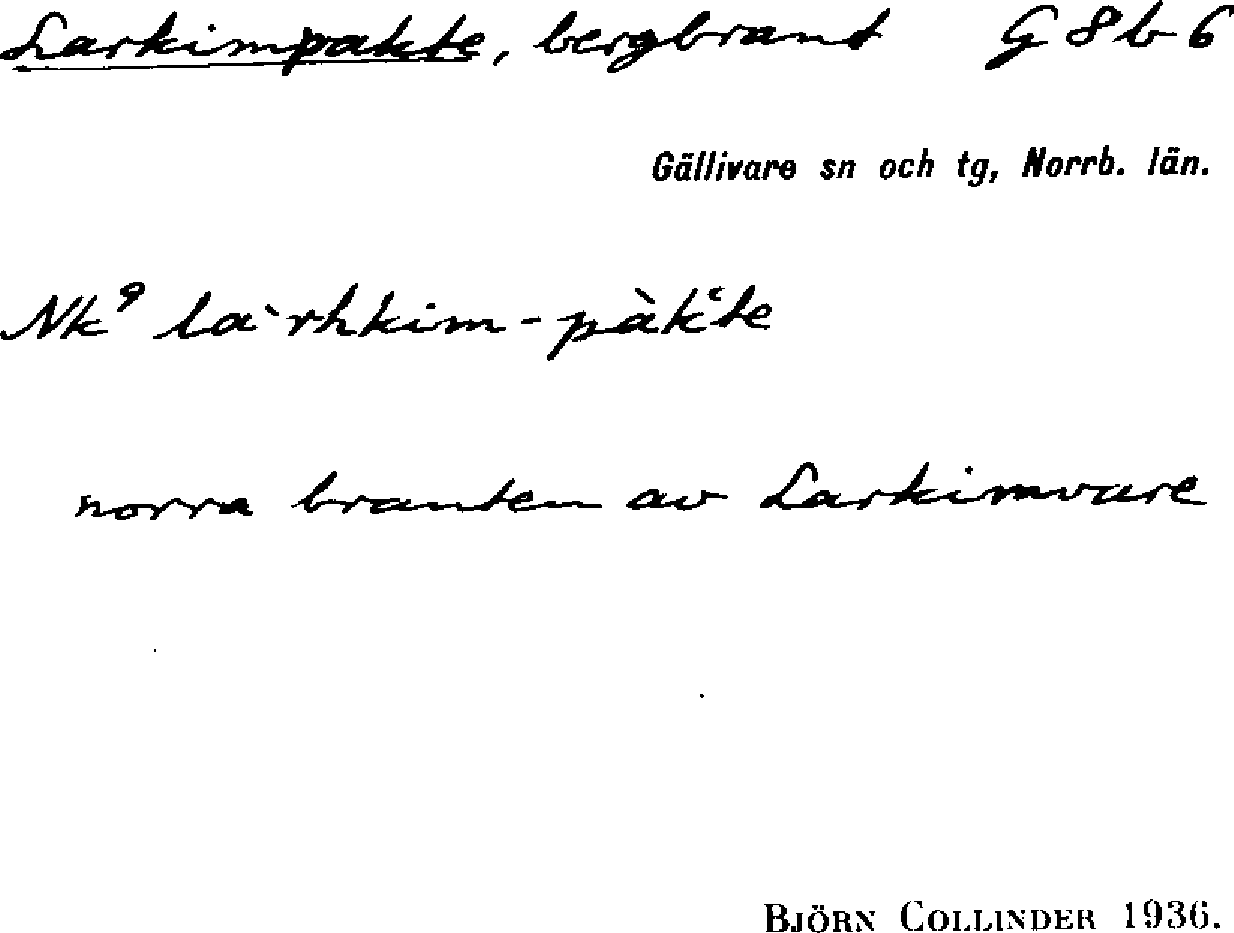 Larkimpakte, bergbrant G 8 b 6
Gällivare sn och tg, Norrb. län.
Nk⁹ la`rhkim-pàk‘te
norra branten av Larkimvare
BJÖRN COLLINDER 1936.